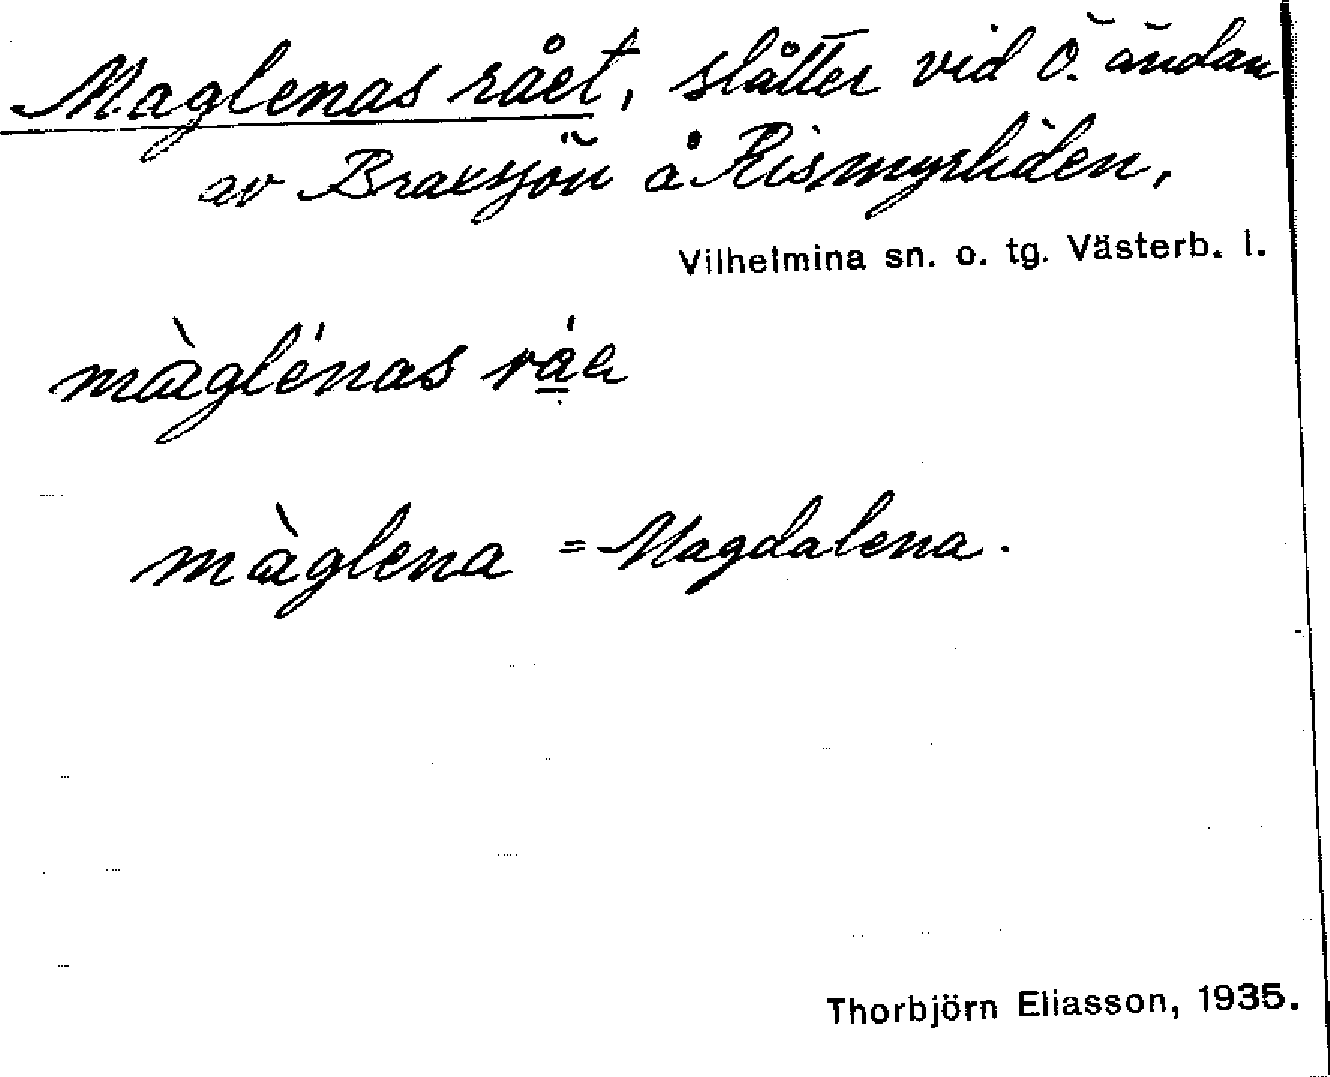 Maglenas rået, slåtter vid Ö. ändan
av Braxsjön å Rismyrliden,
Vilhelmina sn. o. tg. Västerb. l.
màglénas
màglena = Magdalena.
Thorbjörn Eliasson, 1935.